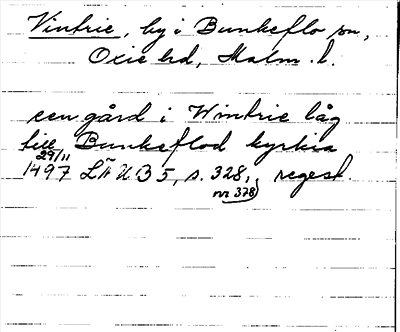 Vintrie, by i Bunkeflo sn,
Oxie hd, Malm. l.
een gård i Wintrie låg
till Bunkeflod kyrkia
29/11
1497 LÄUB 5, s. 328, regest.
nr 378